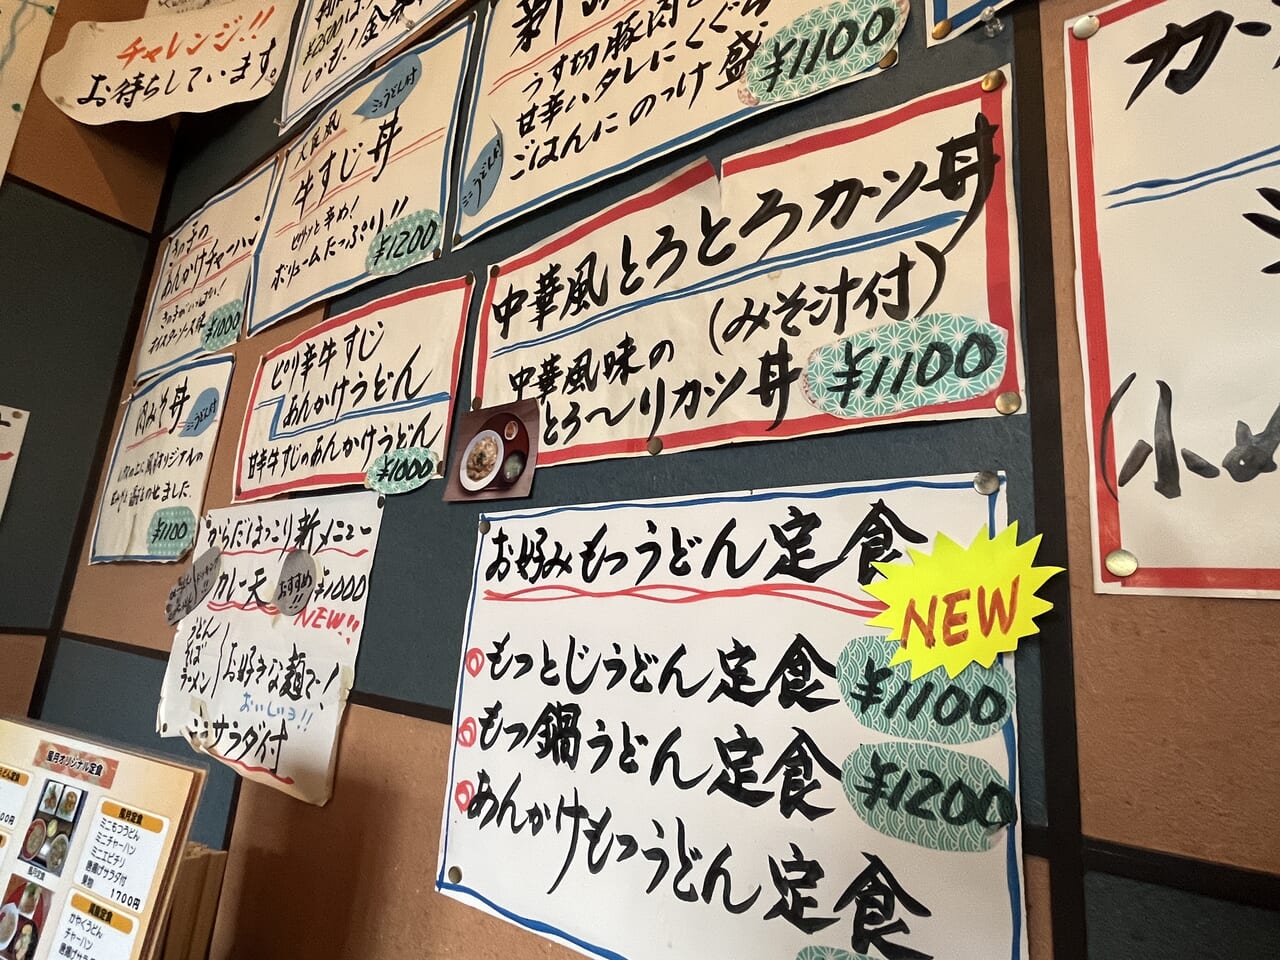 チャレンジ!!
お待ちしています。
うす切豚肉
甘辛いタレにくぐらせ
ごはんにのっけ盛
¥1100
ミニうどん付
ミニうどん付
牛すじ丼
ピリッと辛め!
ボリュームたっぷり!!
¥1200
きのこの
あんかけチャーハン
きのこがいっぱい!
オイスターソース味
¥1000
中華風とろとろカツ丼
(みそ汁付)
中華風味の
とろ〜りカツ丼
¥1100
ピリ辛牛すじ
あんかけうどん
甘辛牛すじのあんかけうどん
¥1000
肉みそ丼
ミニうどん付
¥1100
からだほっこり新メニュー
カレー天
おすすめ!!
¥1000
NEW!!
うどん
そば
ラーメン
お好きな麺で!
おいしいヨ!!
ミニサラダ付
お好みもつうどん定食
NEW
もつとじうどん定食
¥1100
もつ鍋うどん定食
¥1200
あんかけもつうどん定食
カツ
(小
風月オリジナル定食
風月定食
ミニもつうどん
ミニチャーハン
ミニエビチリ
唐揚げサラダ付
果物
1700円
風月定食
かやくうどん
チャーハン